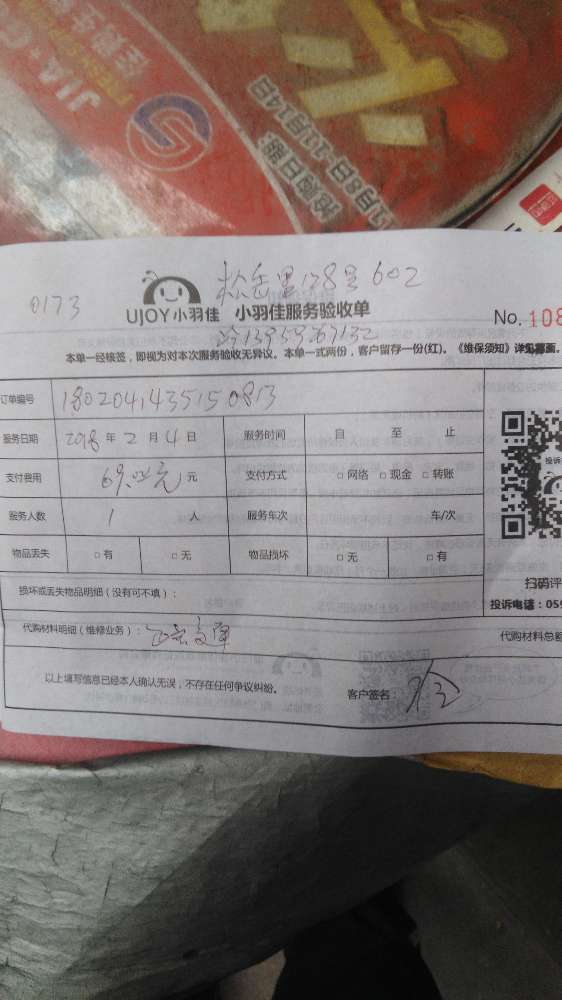 JIA·
全期生
抢购日期:
11月8日-11月14日
0173
松岳里128号602
UJOY小羽佳 小羽佳服务验收单
No. 108
13959267132
本单一经核签，即视为对本次服务验收无异议。本单一式两份，客户留存一份(红)。《维保须知》详见背面。
订单编号 180204143515 0813
服务日期 2018 年 2 月 4 日 服务时间 自 至 止
支付费用 元 支付方式 □网络 □现金 □转账
投诉
服务人数 1 人 服务车次 车/次
物品丢失 □有 □无 物品损坏 □无 □有
扫码评
损坏或丢失物品明细（没有可不填）：
投诉电话：059
代购材料明细（维修业务）：
代购材料总额
以上填写信息已经本人确认无误，不存在任何争议纠纷。 客户签名